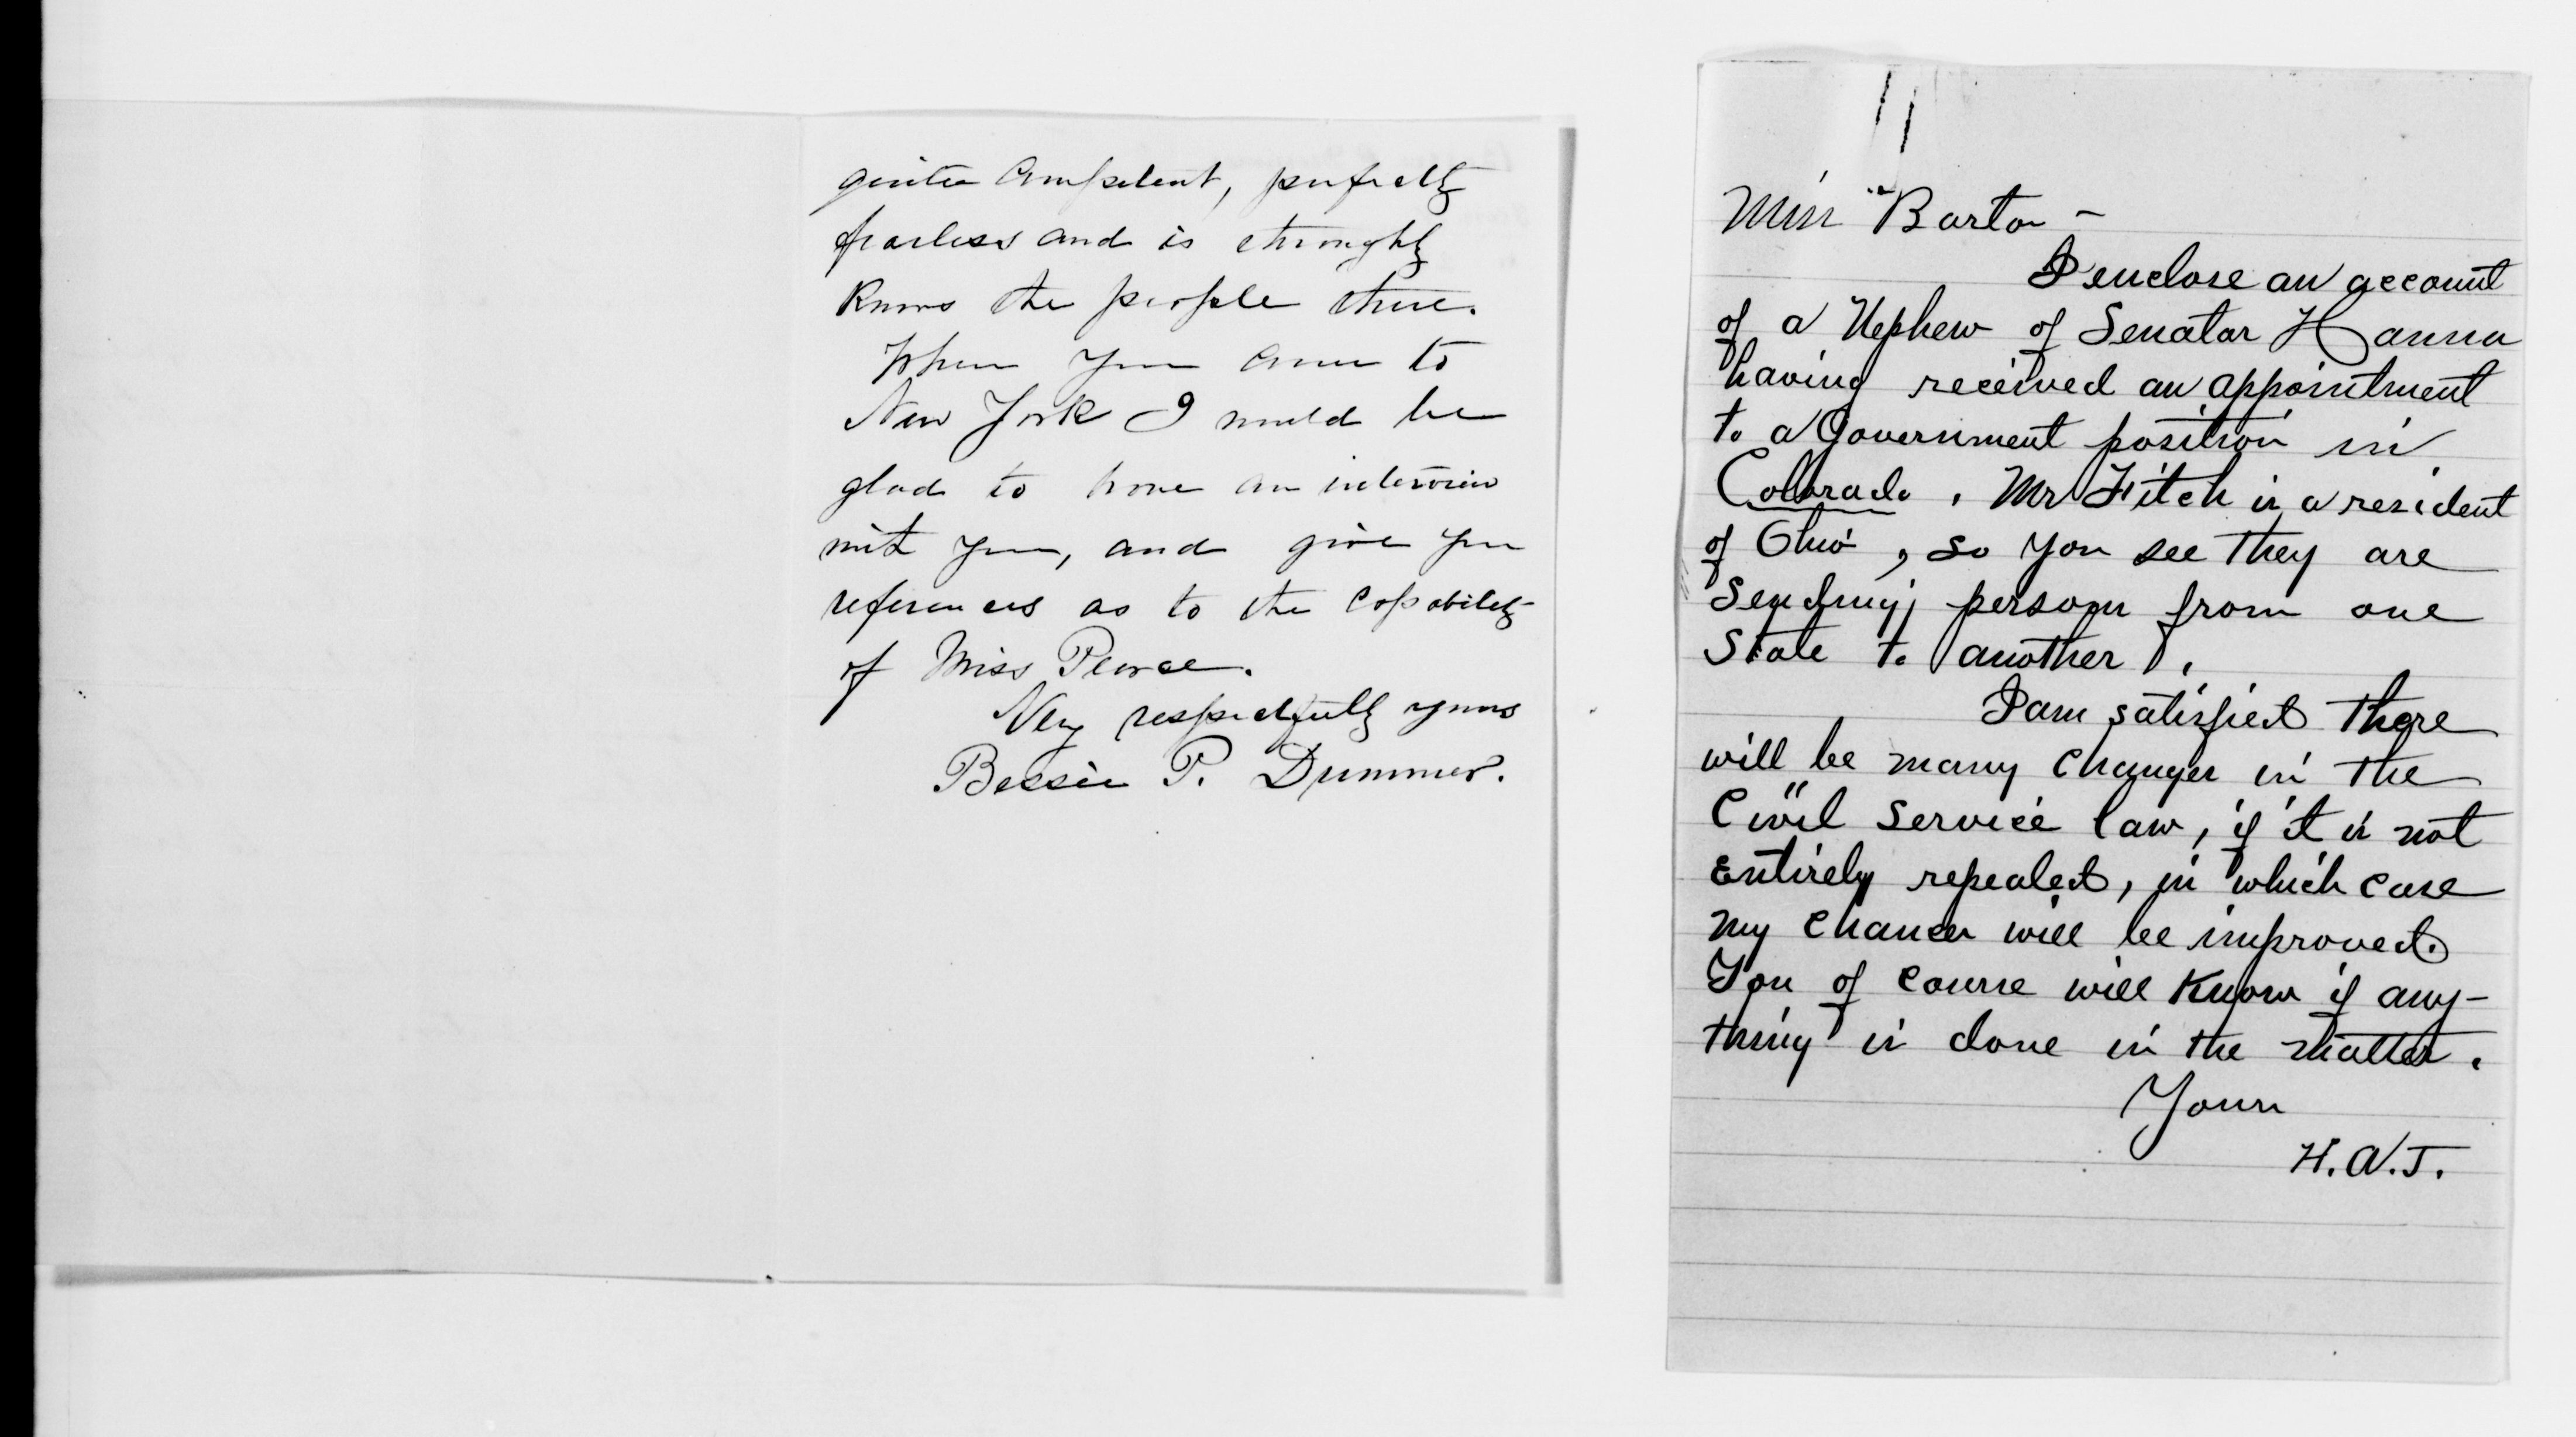 quite competent, perfectly
fearless and is thoroughly
knows the people there.
When you come to
New York I would be
glad to have an interview
with you, and give you
references as to the capability
of Miss Pearce.
Very respectfully yours
Bessie P. Dummer.
Miss Barton -
I enclose an account
of a Nephew of Senator Hanna
having received an appointment
to a Government position in
Colorado. Mr Fitch is a resident
of Ohio, so you see they are
sending persons from one
State to another.
I am satisfied there
will be many changes in the
Civil Service law, if it is not
Entirely repealed, in which case
my chances will be improved.
You of course will know if any-
thing is done in the matter.
Yours
H.A.T.